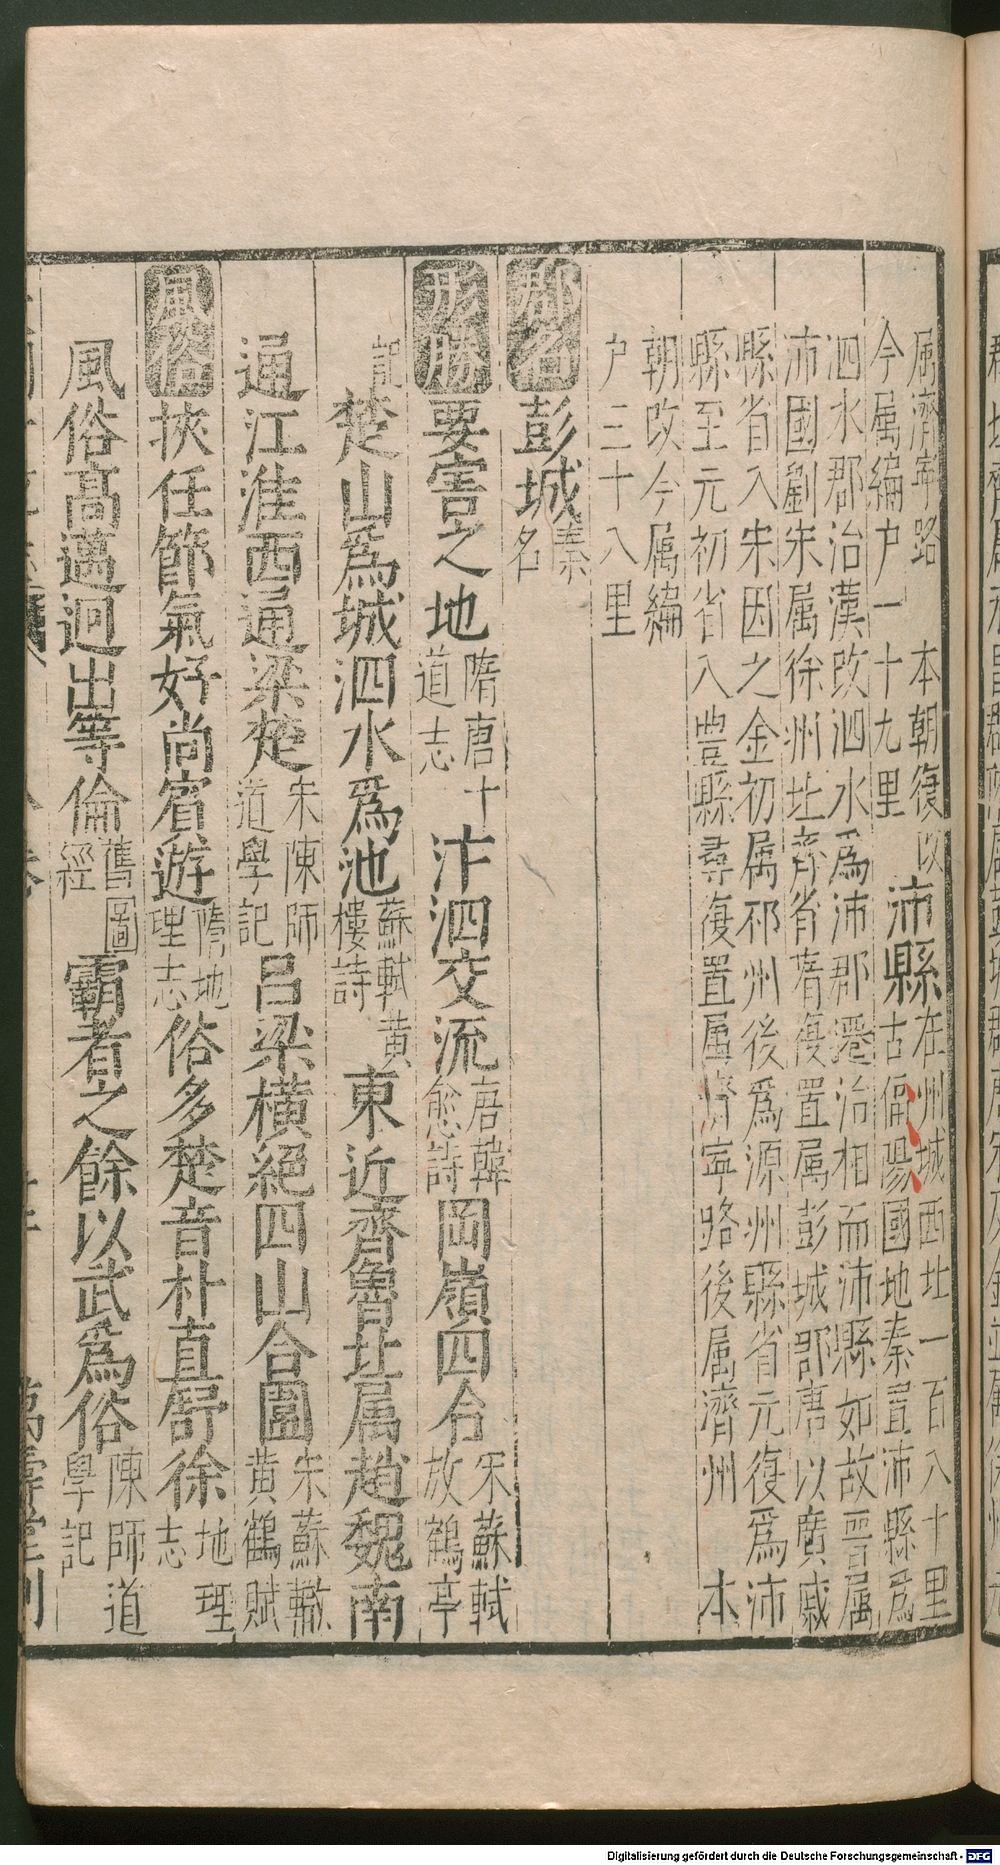 属濟寧路　本朝復改沛縣在州城西北一百八十里
今属編户一十九里　古偪陽國地秦置沛縣爲
泗水郡治漢改泗水爲沛郡遷治相而沛縣如故晋属
沛國劉宋属徐州北齊省隋復置属彭城郡唐以廣戚
縣省入宋因之金初属邳州後爲源州縣省元復爲沛
縣至元初省入豊縣尋復置属濟寧路後属濟州　本
朝改今属編
户三十八里
郡名 彭城秦名
形勝 要害之地隋唐十道志 汴泗交流唐韓愈詩 岡嶺四合宋蘇軾放鶴亭
記 楚山爲城泗水爲池蘇軾黄樓詩 東近齊魯北属趙魏南
通江淮西通梁楚宋陳師道學記 吕梁橫絕四山合圍宋蘇轍黄鶴賦
風俗 挾任節氣好尚賓遊隋地理志 俗多楚音朴直舒徐地理志
風俗高邁迥出等倫舊圖經 霸者之餘以武爲俗陳師道學記
萬壽堂刊
Digitalisierung gefördert durch die Deutsche Forschungsgemeinschaft - DFG